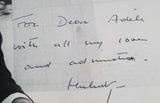 For Dear Adele
with all my love
and admiration.